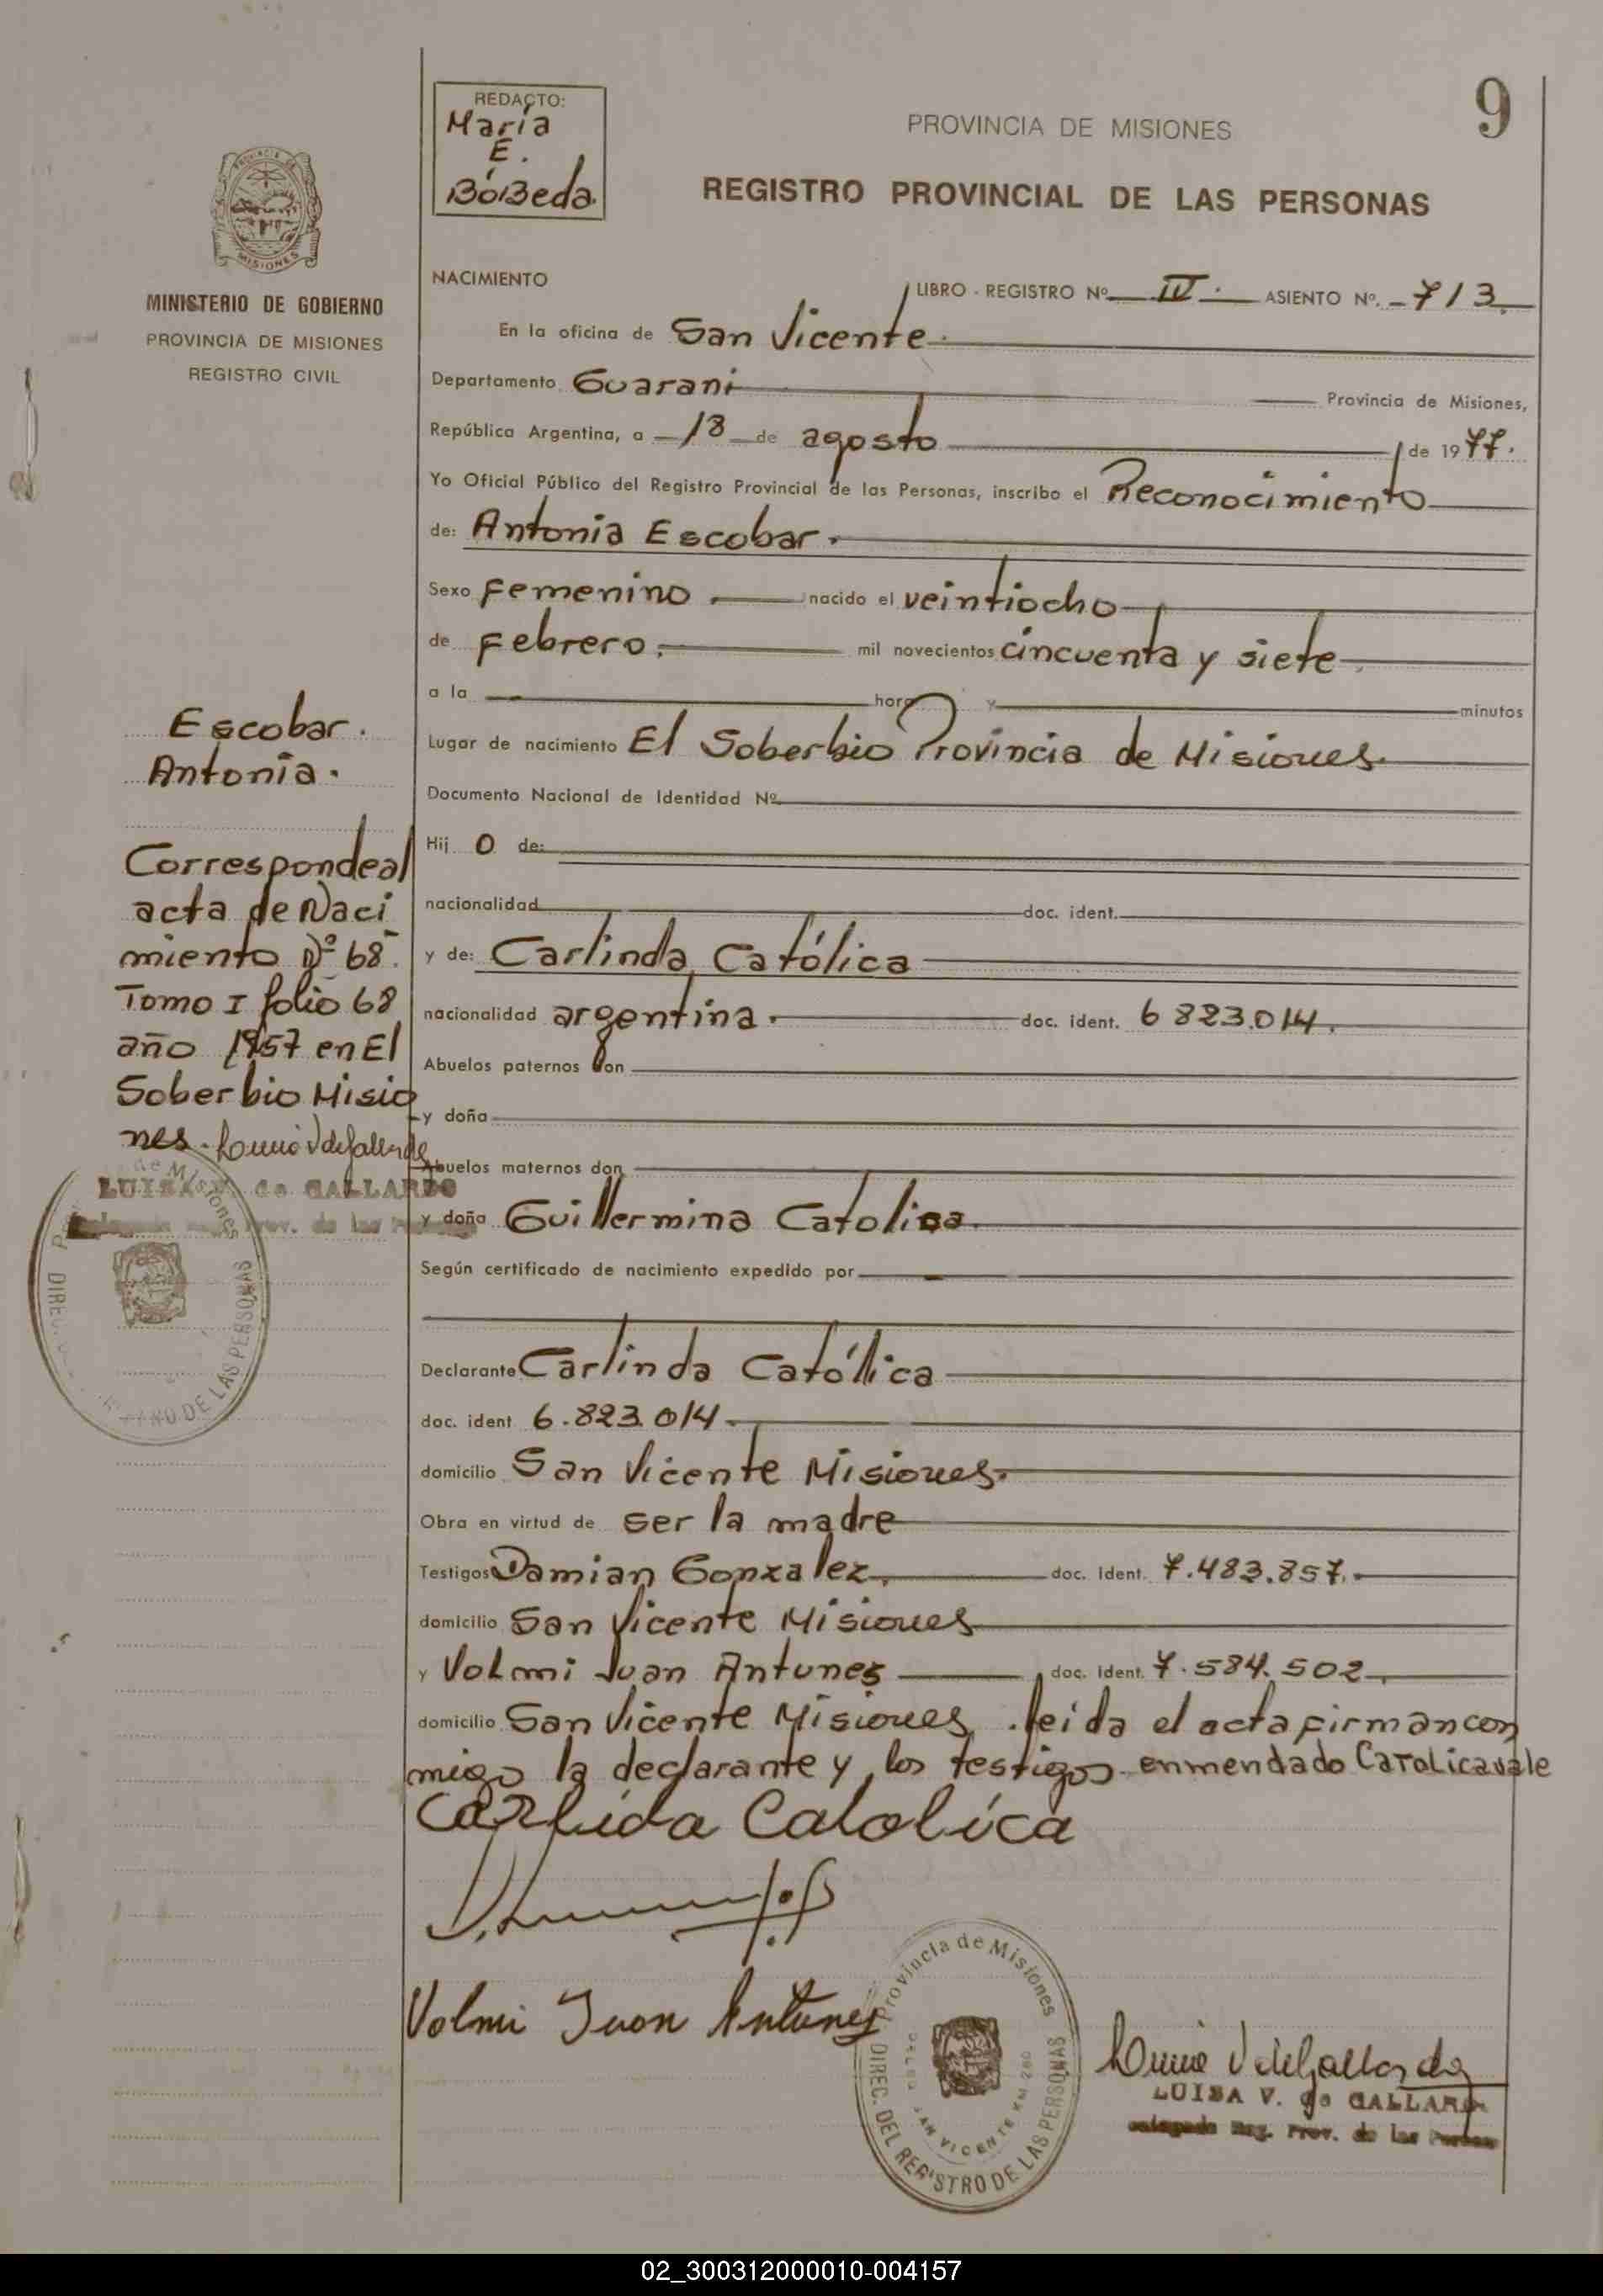 REDACTO:
María
E.
BóBeda.
9
PROVINCIA DE MISIONES
REGISTRO PROVINCIAL DE LAS PERSONAS
MISIONES
MINISTERIO DE GOBIERNO
PROVINCIA DE MISIONES
REGISTRO CIVIL
NACIMIENTO
LIBRO - REGISTRO Nº IV. ASIENTO Nº. 713.
En la oficina de San Vicente.
Departamento Guarani Provincia de Misiones,
República Argentina, a 18 de agosto de 1977.
Yo Oficial Público del Registro Provincial de las Personas, inscribo el Reconocimiento
de: Antonia Escobar.
Sexo Femenino. nacido el veintiocho
de Febrero. mil novecientos cincuenta y siete
a la hora y minutos
Lugar de nacimiento El Soberbio Provincia de Misiones.
Documento Nacional de Identidad Nº
Hij o de:
nacionalidad doc. ident.
y de: Carlinda Católica
nacionalidad argentina. doc. ident. 6 823.014.
Abuelos paternos don
y doña
Abuelos maternos don
y doña Guillermina Catolica.
Según certificado de nacimiento expedido por
Declarante Carlinda Católica
doc. ident 6.823.014.
domicilio San Vicente Misiones.
Obra en virtud de ser la madre
Testigos Damian Gonzalez. doc. ident. 7.483.857.
domicilio San Vicente Misiones
y Volmi Juan Antunes doc. ident. 7.584.502
domicilio San Vicente Misiones. leida el acta firman con
migo la declarante y los testigos. enmendado Catolica vale
Carlida Catolica
Volmi Juan Antunes
Provincia de Misiones
DIREC. DEL REGISTRO DE LAS PERSONAS
SAN VICENTE KM 280
LUISA V. de GALLARDO
Reg. Prov. de las
Escobar.
Antonia.
Corresponde al
acta de Naci
miento Nº 68.
Tomo I folio 68
año 1957 en El
Soberbio Misio
nes.
LUISA V. de GALLARDO
Prov. de las
de Misiones
DIREC.
DE LAS PERSONAS
02_300312000010-004157